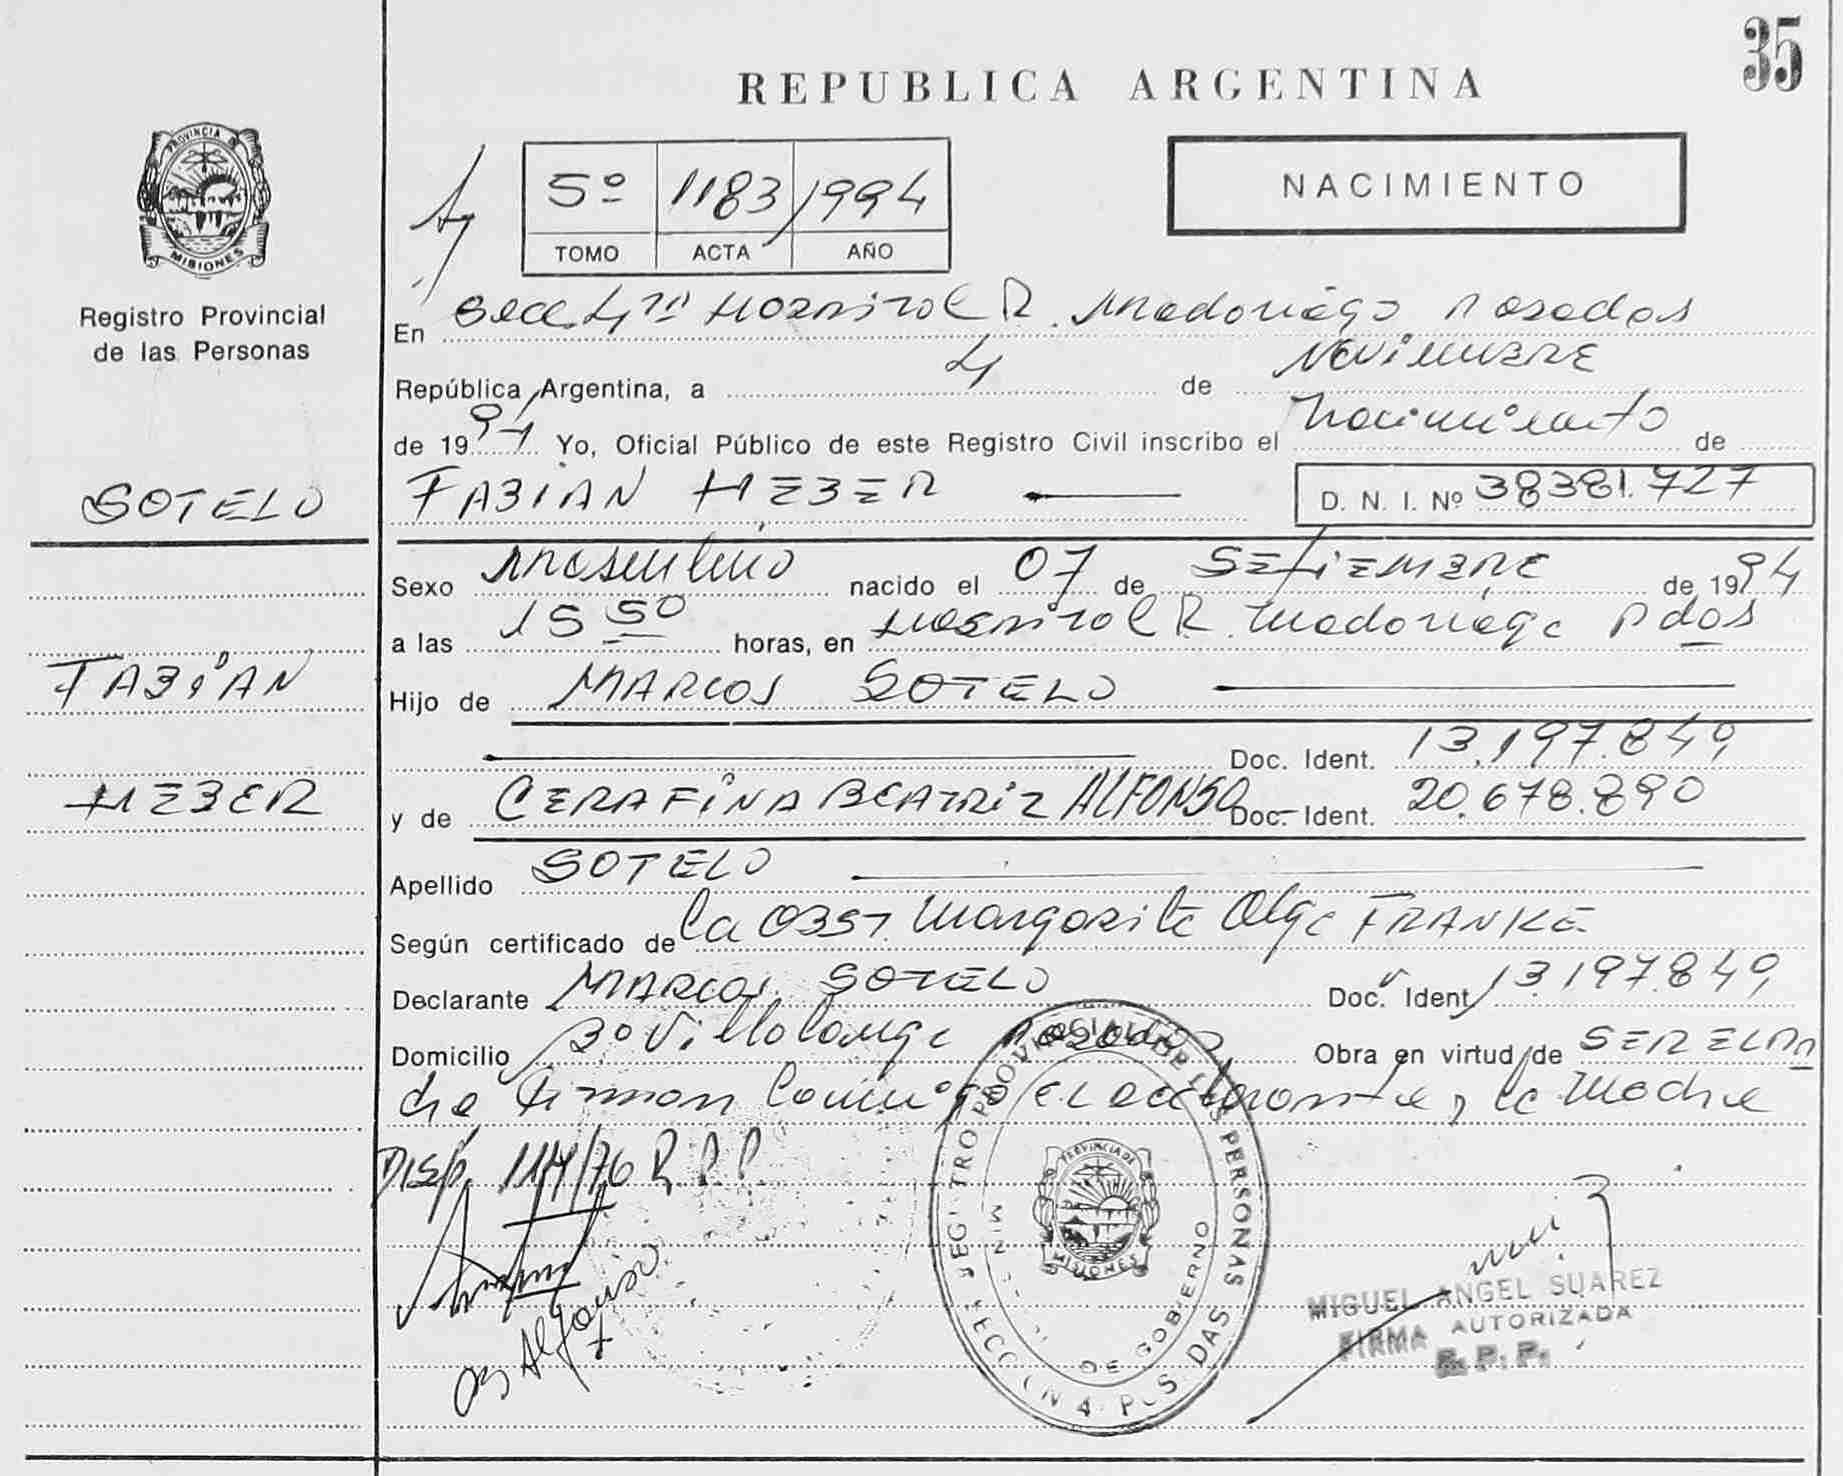 35
REPUBLICA ARGENTINA
PROVINCIA DE
MISIONES
Registro Provincial
de las Personas
5º 1183 1994
TOMO ACTA AÑO
NACIMIENTO
En Secc. 4ta Hospital R. Madariaga Posadas
República Argentina, a 4 de Noviembre
de 1994 Yo, Oficial Público de este Registro Civil inscribo el Nacimiento de
SOTELO
FABIAN HEBER
D. N. I. Nº 38381.727
Sexo Masculino nacido el 07 de SEtiEMBRE de 1994
a las 15 50 horas, en Hospital R. Madariaga Pdas
FABIAN
Hijo de MARCOS SOTELO
Doc. Ident. 13.197.849
HEBER
y de CERAFINA BEATRIZ ALFONSO Doc. Ident. 20.678.890
Apellido SOTELO
Según certificado de la OBST. Margarita Olga FRANKE
Declarante MARCOS SOTELO Doc. Ident. 13.197.849
Domicilio Bº Villalonga Posadas Obra en virtud de SER EL PA
dre Firman Conmigo EL declarante y la Madre
Disp. 114/76 R.P.P.
Alfonso
REGISTRO PROVINCIAL DE LAS PERSONAS
PROVINCIA DE
MISIONES
DE GOBIERNO
SECCION 4 POSADAS
MIGUEL ANGEL SUAREZ
FIRMA AUTORIZADA
R. P. P.